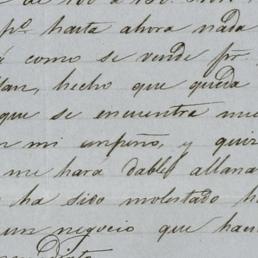 de 100 a 150.
pº hasta ahora nada
como se vende pr.
hecho que queda
que se encuentra
mi empeño, y quiz
me hara dable allana
ha sido molestado h
un negocio que hac